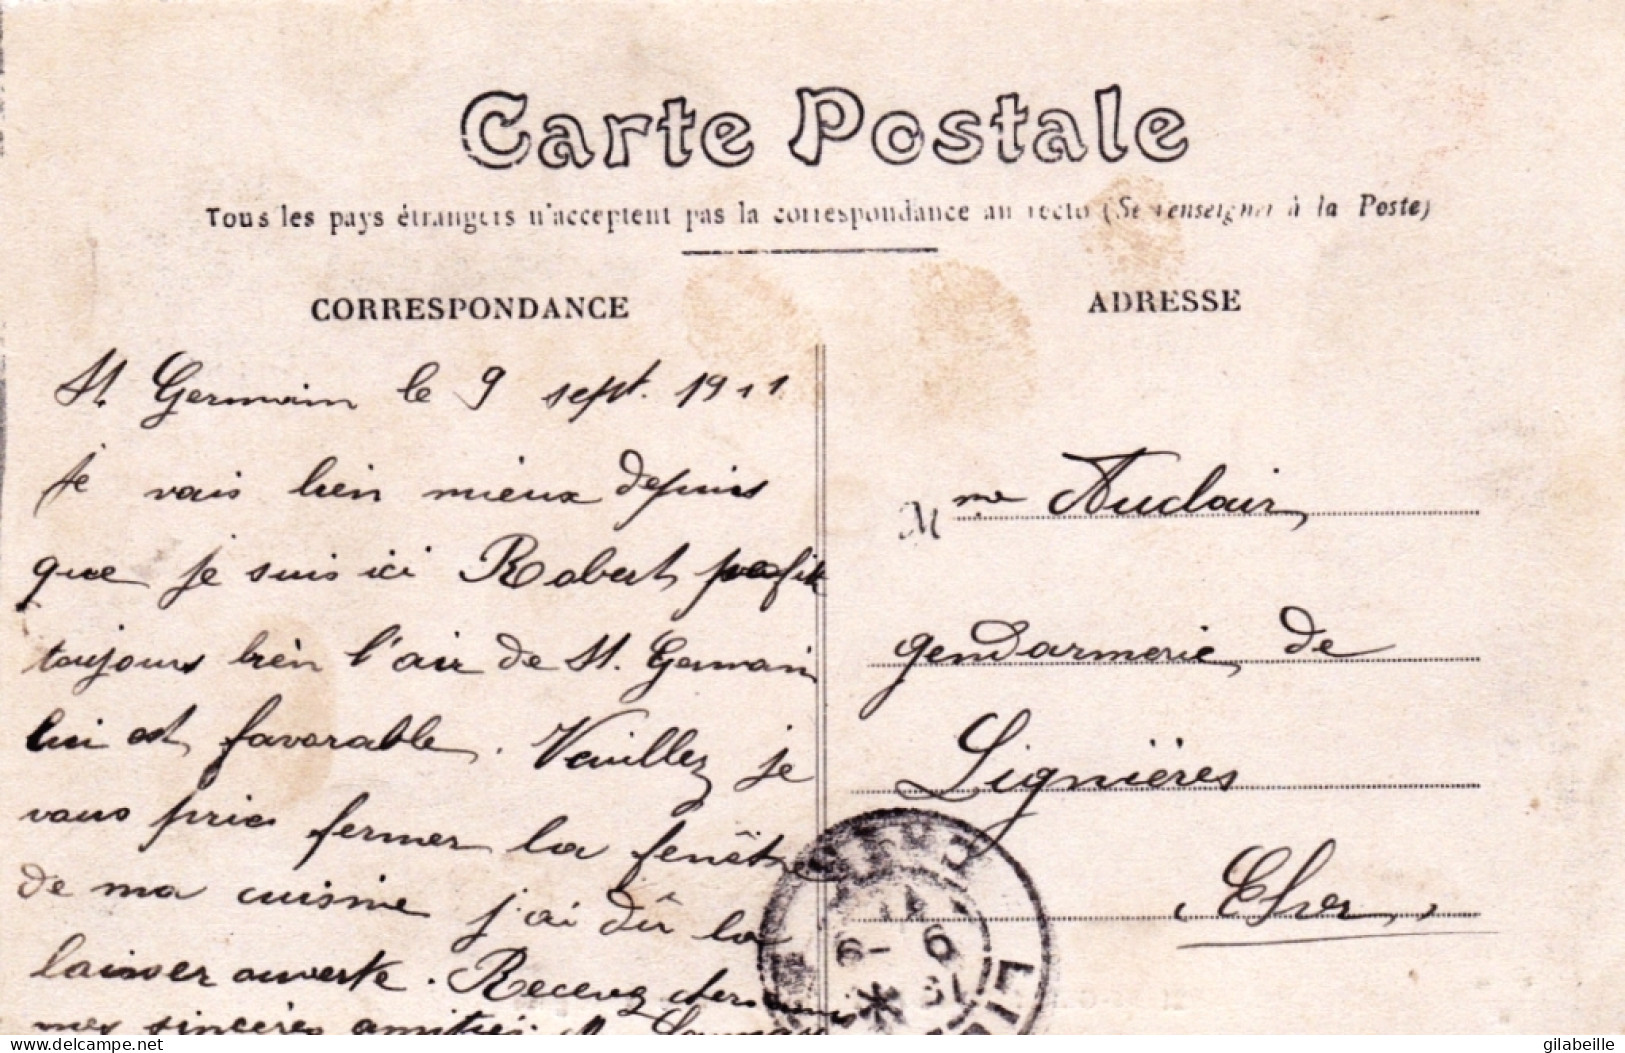 Carte Postale
Tous les pays étrangers n'acceptent pas la correspondance au recto (Se renseigner à la Poste)
CORRESPONDANCE
St. Germain le 9 sept. 1911
Je vais bien mieux depuis
que je suis ici Robert profite
toujours bien l'air de St. Germain
lui est favorable. Veuillez je
vous prie fermer la fenêtre
de ma cuisine j'ai dû la
laisser ouverte. Recevez chers amis
mes sincères amitiés. M.
ADRESSE
Mme Auclair
gendarmerie de
Lignières
Cher
delcampe.net
gilabeille